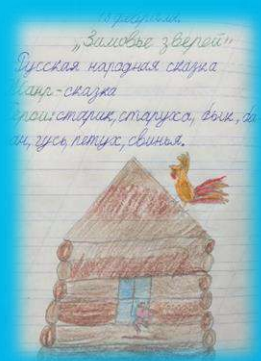 13 февраля.
„Зимовье зверей"
Русская народная сказка
Жанр-сказка
Герои: старик, старуха, бык, ба
ан, гусь, петух, свинья.